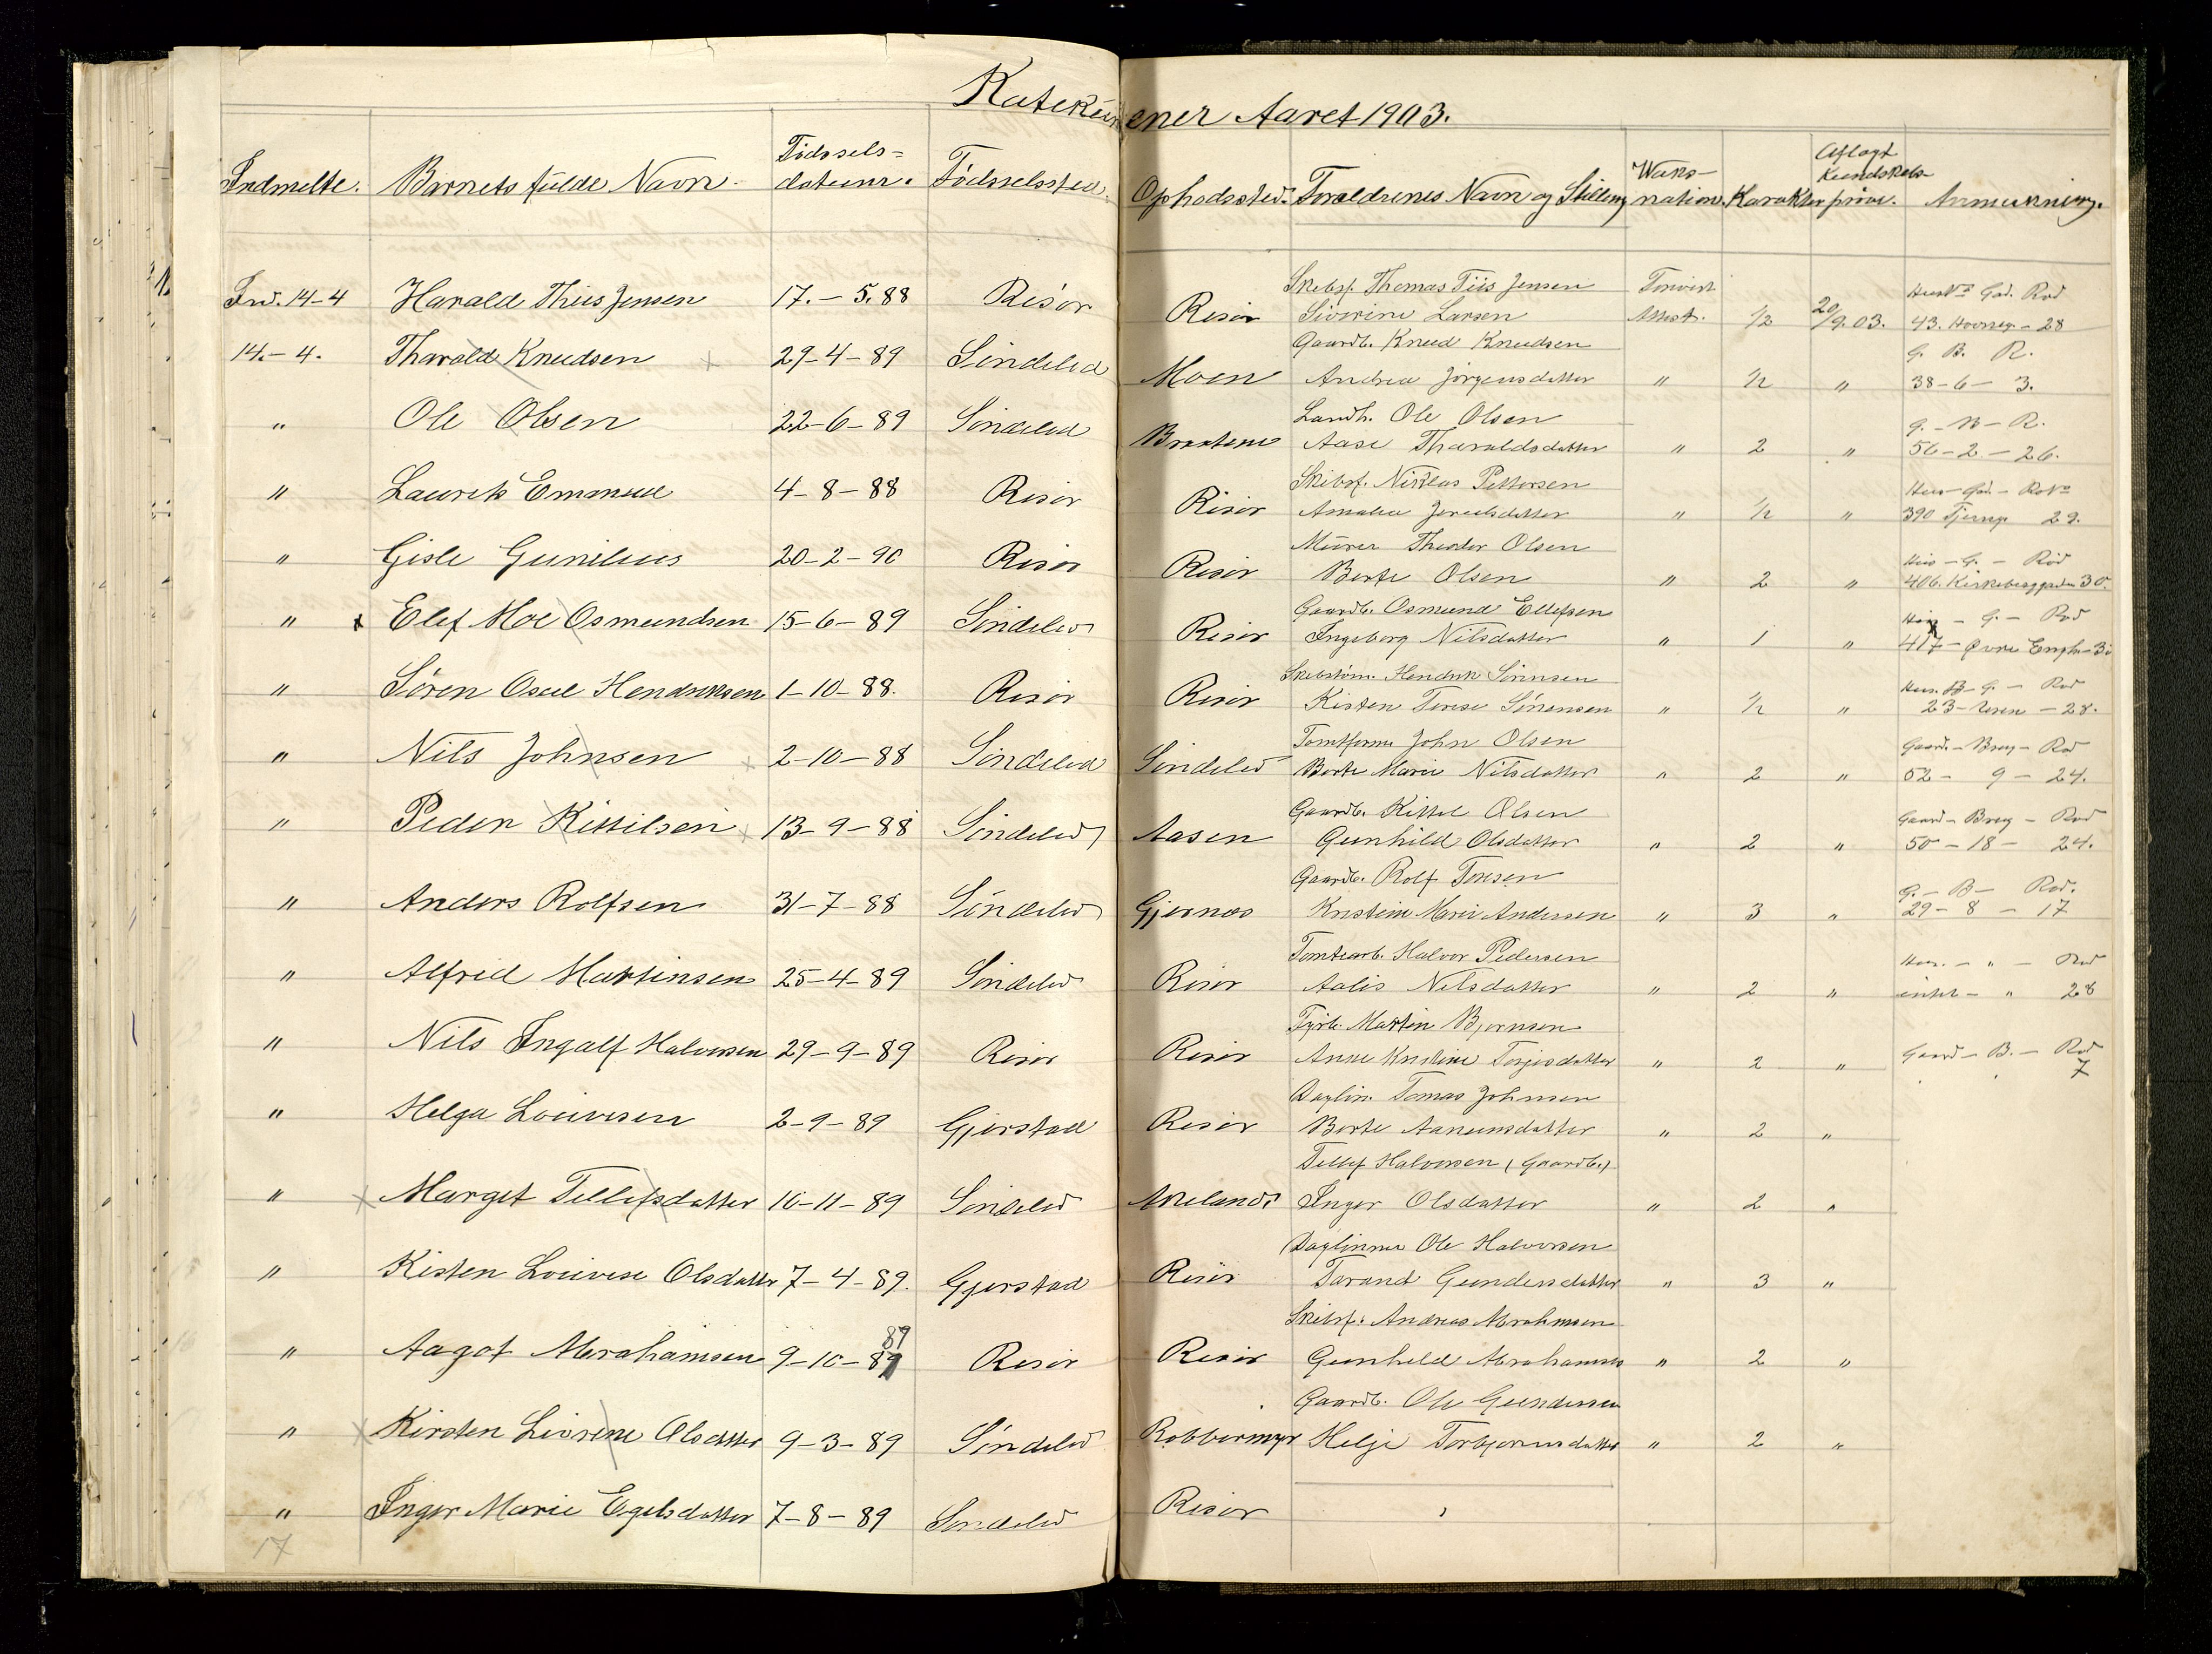 Katekümener Aaret 1903.
Indmeldte. Barnets fulde Navn. Fødsels-datum. Fødselssted. Opholdssted. Forældrenes Navn og Stilling Vaksination. Karakter Aflagt Kundskabsprøve. Anmerkning.
Ind. 14-4 Harald Thiis Jensen 17.-5.88 Risør Risør Skibsf. Thomas Tiis Jensen
Siverine Larsen Attest. 1/2 20/9.03. 43. - 28
14.-4. Tharald Knudsen 29-4-89 Søndeled Moen Gaardb. Knud Knudsen G. B. R.
Andrea Jørgensdatter " 1/2 " 38-6-3.
" Ole Olsen 22-6-89 Søndeled Braatene Landh. Ole Olsen G.-B-R.
Aase Tharaldsdatter " 2 " 56-2-26.
" Laurits Emanuel 4-8-88 Risør Risør Skibsf. Niklas Pettersen Hus-Gad.-Rodn
Amalia " 1/2 " 390 29.
" Gisle Gunelius 20-2-90 Risør Risør Murer Theodor Olsen Hus-G.-Rod
Berte Olsen " 2 " 406. Kirkeberggaden 30.
" x Elef Moe Osmundsen 15-6-89 Søndeled Risør Gaardb. Osmund Ellefsen Hus - G. - Rod
Ingeborg Nilsdatter " 1 " 417 - Øvre
" Søren Osul Hendriksen 1-10-88. Risør Risør Skibstøm. Hendrik Sørensen Hus. B-G.-Rod
Kisten Terese Sørensen " 1/2 " 23- -28.
" Nils Johnsen 2-10-88 Søndeled Søndeled John Olsen Gaard.-Brug-Rod
Berte Marie Nilsdatter " 2 " 52- 9-24.
" Peder Kittilsen 13-9-88 Søndeled Aasen Gaardb. Kittel Olsen Gaard-Brug-Rod
Gunhild Olsdatter " 2 " 50-18-24.
" Anders Rolfsen 31-7-88 Søndeled Gjernes Gaardb. Rolf Toresen G.-B-Rod.
Kristine Marie Andersen " 3 " 29-8-17
" Alfred Martinsen 25-4-89 Søndeled Risør Tomtearb. Halvor Pedersen Hus.-"-Rod
Aalis Nilsdatter " 2 " - " 28
" Nils Ingalf Halvorsen 29-9-89 Risør Risør Fyrb. Martin Bjørnsen Gaard-B.-Rod
Anne Kristine Torjesdatter " 2 " 7
" Helga Louvisen 2-9-89 Gjerstad Risør Dagløn. Tomas Johnsen
Berte Aanensdatter " 2 "
" x Marget Tellefsdatter 10-11-89 Søndeled Akeland Tellef Halvorsen (Gaardb.)
Inger Olsdatter " 2 "
" Kisten Louvise Olsdatter 7-4-89. Gjerstad Risør Daglønner Ole Halvorsen
Tarand Gundersdatter " 3 "
" Aagot Abrahamsen 9-10-89 89 Risør Risør Skibsf. Andreas Abrahmsen
Gunhild Abrahamsen " 2 "
" x Kirsten Olsdatter 9-3-89 Søndeled Robbermyr Gaardb. Ole Gundersen
Helje Torbjørnsdatter " 2 "
" Inger Marie Egelsdatter 7-8-89 Søndeled Risør
17